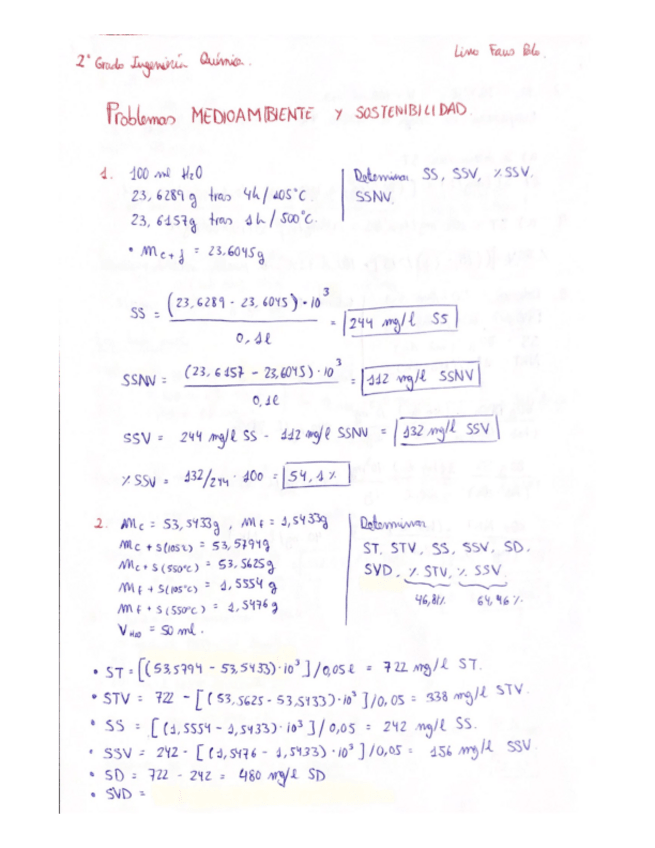 2º Grado Ingeniería Química.
Lino Faus
Problemas MEDIOAMBIENTE Y SOSTENIBILIDAD
1. 100 ml H2O
23,6289 g tras 4h / 105°C.
23,6157g tras 1h / 500°C.
• mc+f = 23,6045g
Determinar SS, SSV, %SSV,
SSNV.
SS = (23,6289 - 23,6045) · 10³ / 0,1l = 244 mg/l SS
SSNV = (23,6157 - 23,6045) · 10³ / 0,1l = 112 mg/l SSNV
SSV = 244 mg/l SS - 112 mg/l SSNV = 132 mg/l SSV
% SSV = 132/244 · 100 = 54,1 %
2. Mc = 53,5433g , Mf = 1,5433g
Mc + S(105°C) = 53,5794g
Mc + S(550°C) = 53,5625g
Mf + S(105°C) = 1,5554 g
Mf + S(550°C) = 1,5476 g
VH2O = 50 ml.
Determinar
ST, STV, SS, SSV, SD,
SVD, % STV, % SSV.
46,81% 64,46 %.
• ST = [(53,5794 - 53,5433)·10³] / 0,05l = 722 mg/l ST.
• STV = 722 - [(53,5625 - 53,5433)·10³] / 0,05 = 338 mg/l STV.
• SS = [(1,5554 - 1,5433)·10³] / 0,05 = 242 mg/l SS.
• SSV = 242 - [(1,5476 - 1,5433)·10³] / 0,05 = 156 mg/l SSV.
• SD = 722 - 242 = 480 mg/l SD
• SVD =